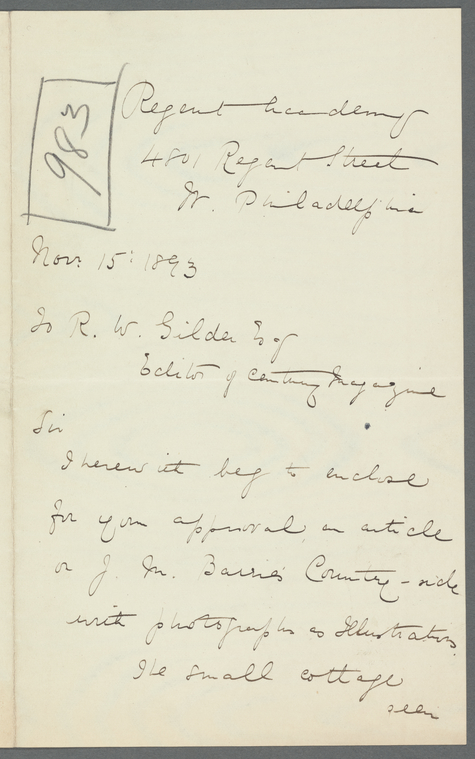 983
Regent Academy
4801 Regent Street
W. Philadelphia
Nov. 15: 1893
To R. W. Gilder Esq
Editor of Century Magazine
Sir
I herewith beg to enclose
for your approval an article
on J. M. Barrie's Country-side
with photographs as Illustrations.
The small cottage
seen